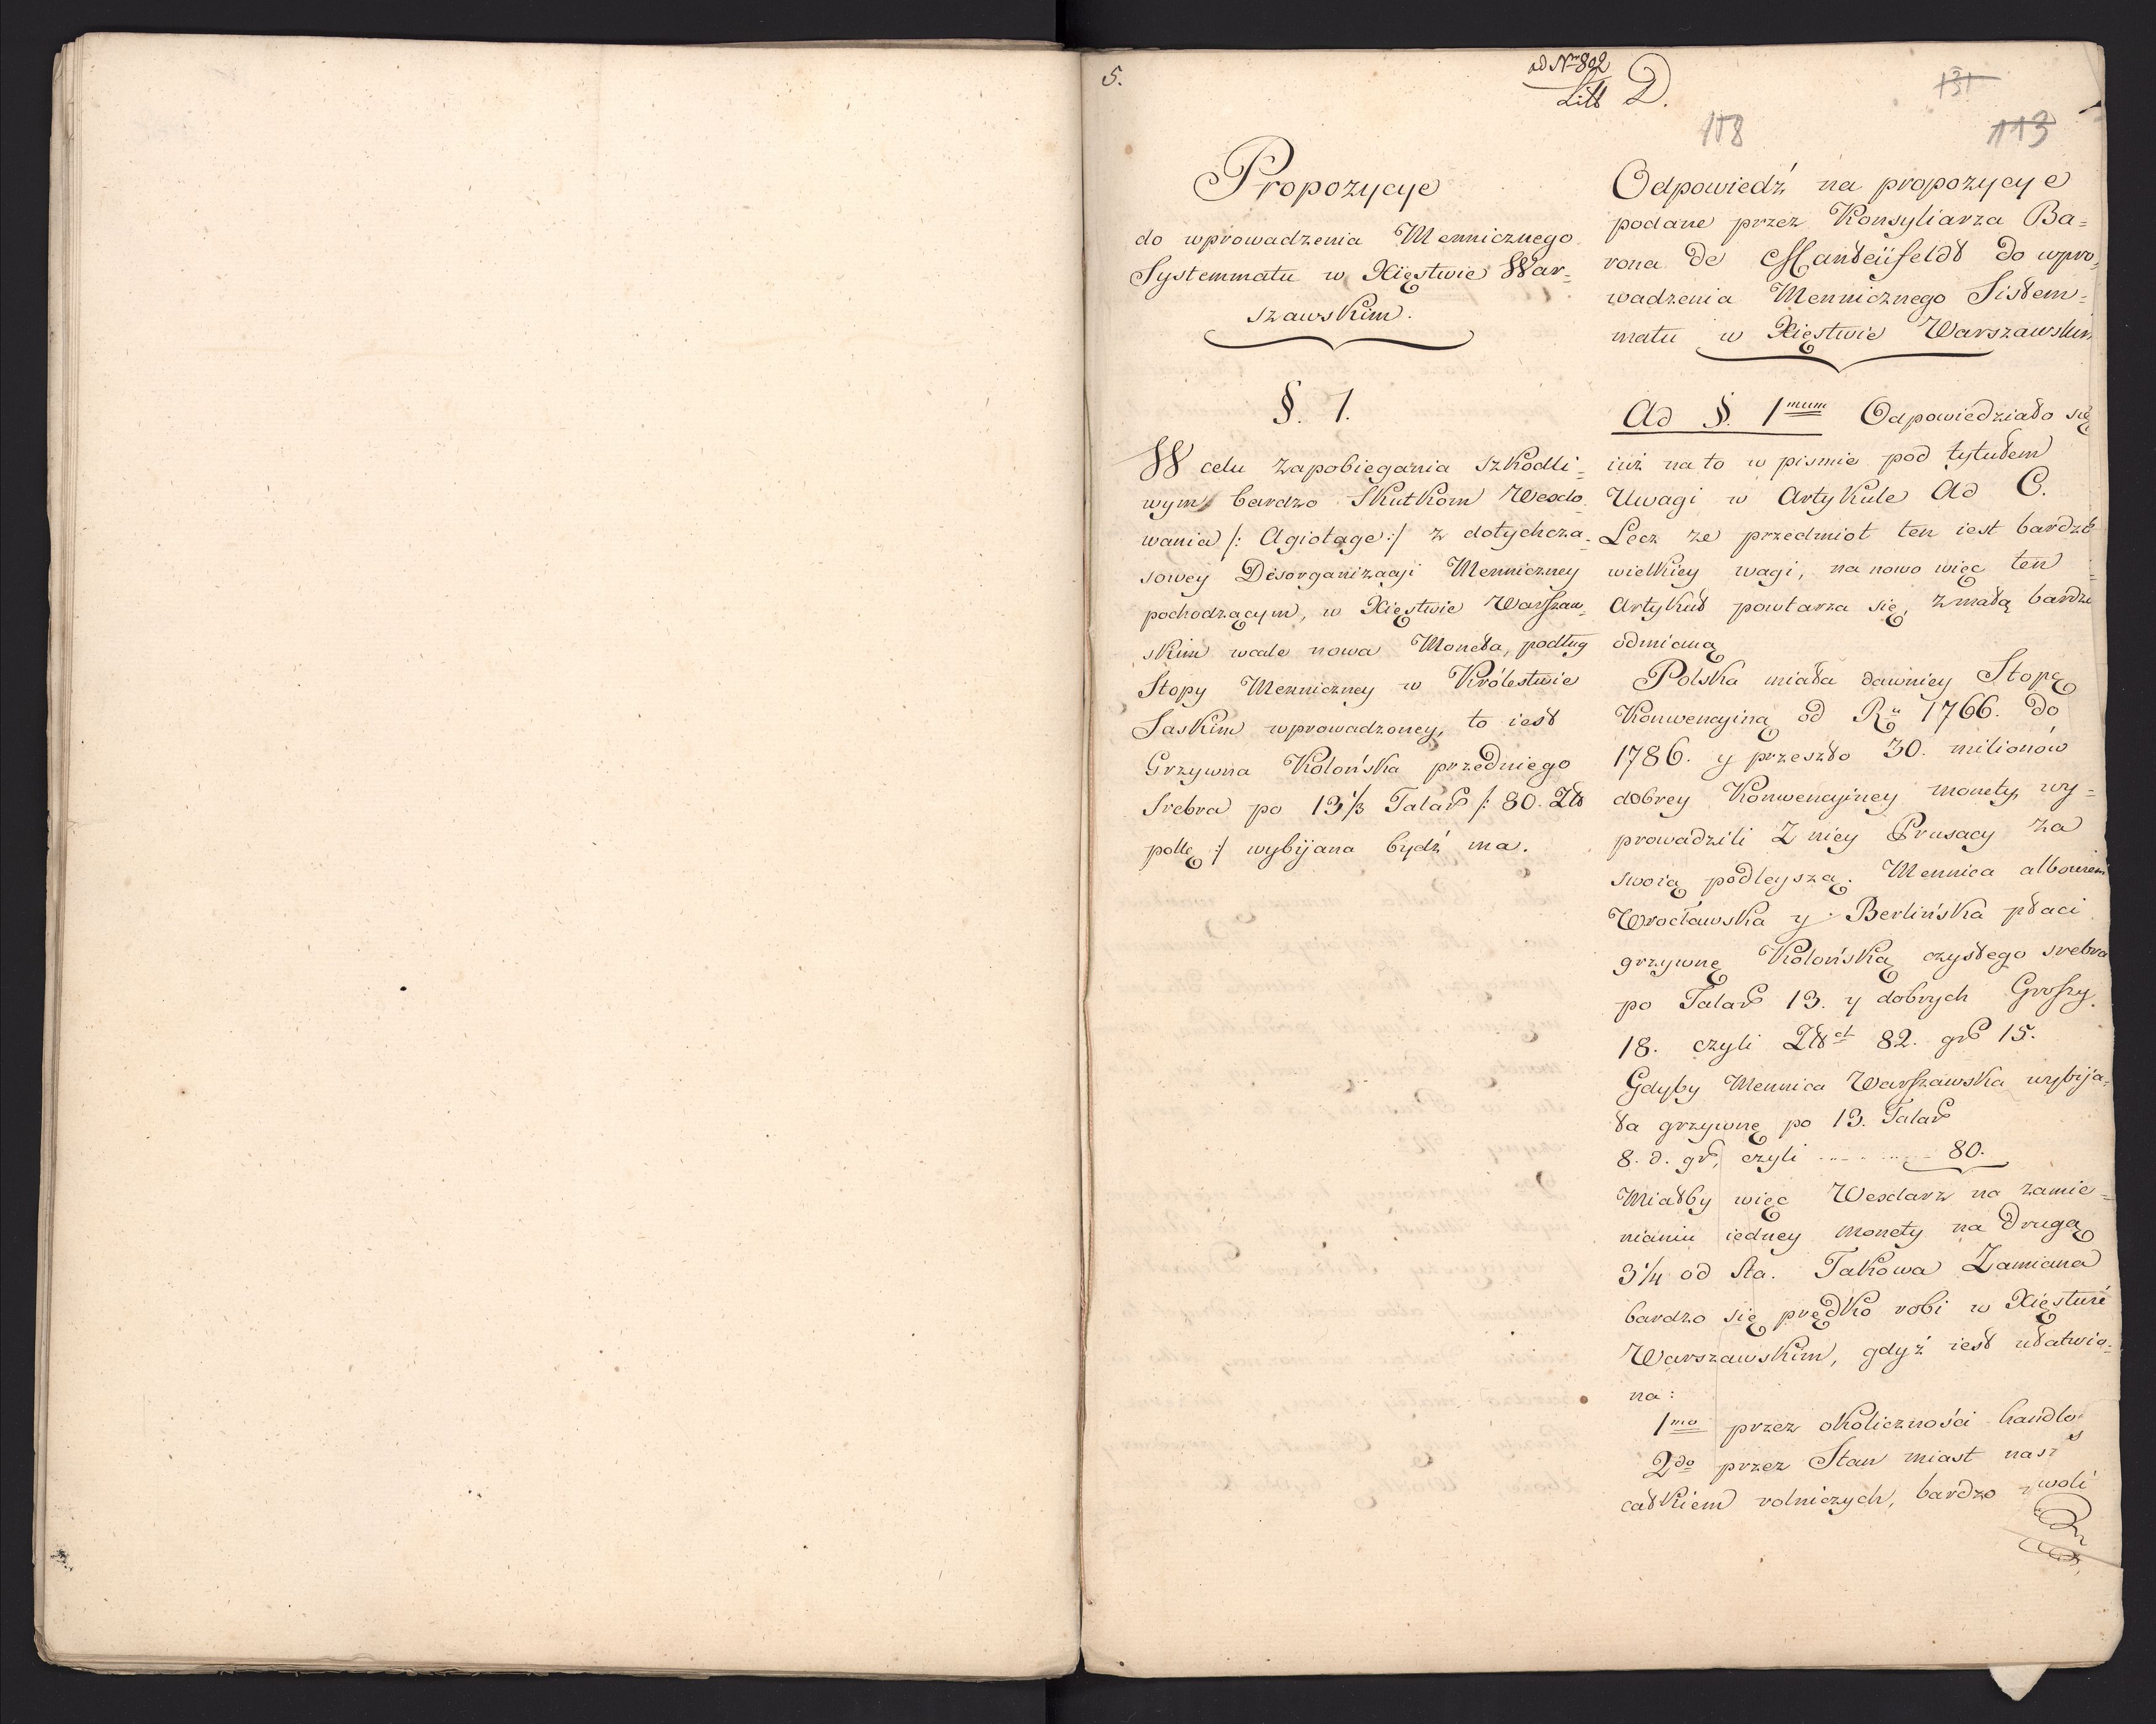 5.
ad Nrm 802
Litt D.
131
118
113
Propozycye
do wprowadzenia Mennicznego
Systemmatu w Xięstwie War=
szawskim.
§. 1.
W celu zapobiegania szkodli=
wym bardzo Skutkom Wexlo=
wania /: Agiotage :/ z dotychcza=
sowey Disorganizacyi Menniczney
pochodzącym, w Xięstwie Warszaw=
skim wcale nowa Moneta, podług
Stopy Menniczney w Królestwie
Saskim wprowadzoney, to iest
Grzywna Kolońska przedniego
Srebra po 13 1/3 Talar /: 80. Zł
polle :/ wybijana bydź ma.
Odpowiedź na propozycye
podane przez Konsyliarza Ba=
rona de Manteüfeldt do wpro=
wadzenia Mennicznego Sistem=
matu w Xięstwie Warszawskim
Ad §. 1mum Odpowiedziało się
iuż na to w pismie pod tytułem
Uwagi w Artykule Ad C.
Lecz ze przedmiot ten iest bardzo
wielkiey wagi, na nowo więc ten
Artykuł powtarza się, z małą bardzo
odmianą
Polska miała dawniey Stopę
Konwencyiną od Ru 1766. do
1786. y przeszło 30. milionów
dobrey Konwencyiney monety, wy=
prowadzili z niey Prusacy za
swoią podleyszą. Mennica albowiem
Wrocławska y Berlińska płaci
grzywnę Kolońską czystego srebra
po Talar 13. y dobrych Groszy
18. czyli Złot 82. gr 15.
Gdyby Mennica Warszawska wybija=
ła grzywnę po 13. Talar
8. d. gr, czyli ............ 80.
Miałby więc Wexlarz na zamie=
nianiu iedney monety na drugą
3 1/4 od Sta. Takowa Zamiana
bardzo się prędko robi w Xięstwie
Warszawskim, gdyż iest ułatwio=
na:
1mo przez okoliczności handlo
2do przez Stan miast nasz
całkiem rolniczych, bardzo